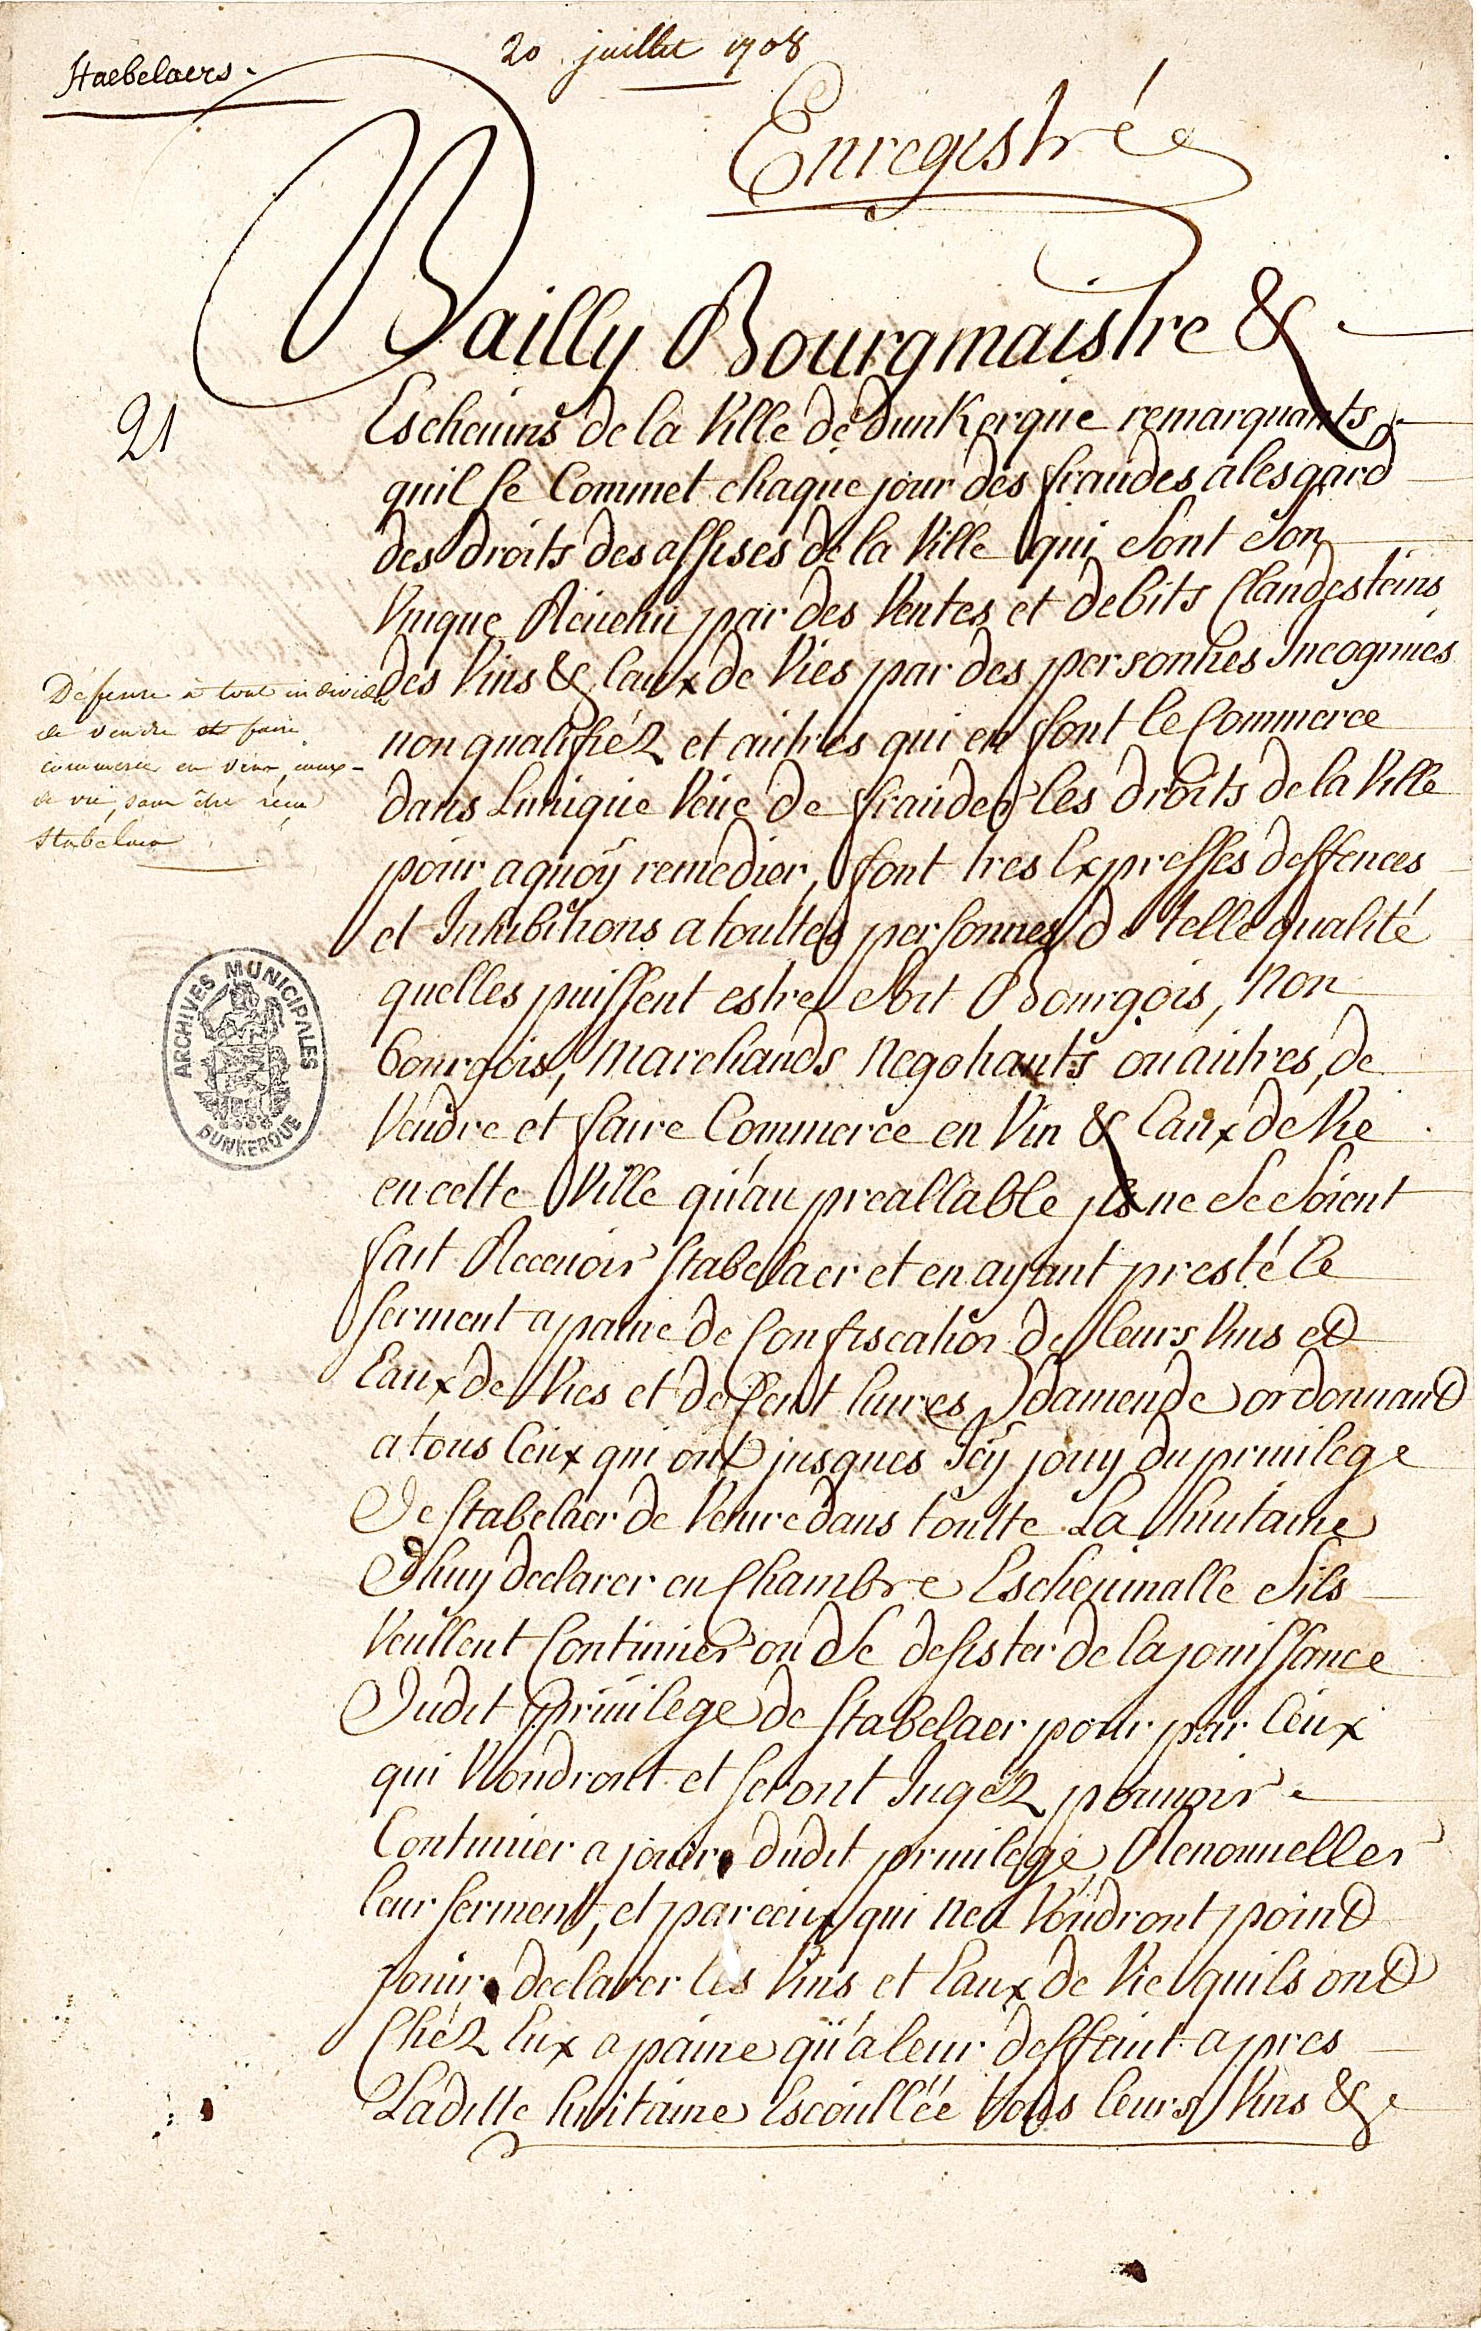 Stabelaers.
20 juillet 1708
Enregistrée
Bailly Bourgmaistre &
21
Escheuins de la Ville de dunKerque remarquants,
quil se Commet chaque jour des fraudes alesgard
des droits des assises de la Ville qui sont son
Vnique Reuenu par des Ventes et debits Clandesteins
des Vins & Eaux de Vies par des personnes Incognues
non qualifiéz et autres qui en font le Commerce
dans Lunique Veue de frauder les droits de la Ville
pour aquoy remedier, font tres Expresses deffences
et Inhibitions a touttes personnes de telle qualité
quelles puissent estre soit Bourgois, non
bourgois, marchands negotiants ou autres, de
Vendre et faire Commerce en Vin & Eaux de Vie
en cette Ville qu'au preallable ils ne se soient
fait Receuoir stabelaer et en ayant presté le
serment a paine de Confiscation de leurs Vins et
Eaux de Vies et de Cent liures damende ordonnant
a tous Ceux qui ont jusques Icy jouy du priuilege
De stabelaer de Venir dans toutte La huitaine
Dhuy declarer en Chambre Escheuinalle sils
Veullent Continuer ou de se desister de la jouissance
Dudit priuilege de stabelaer pour par Ceux
qui Voudront et seront Jugéz pouuoir
Continuer a jouir dudit priuilege, Renouueller
leur serment, et par ceux qui nen Voudront point
jouir declarer les Vins et Eaux de Vie quils ont
Chéz Eux a paine qu'a leur deffaut apres
Laditte huitaine Escoullée tous leurs Vins &
Défense à tout individu
de vendre et faire
commerce en vins, eaux-
de vie, sans être reçu
Stabelaer
ARCHIVES MUNICIPALES
DUNKERQUE